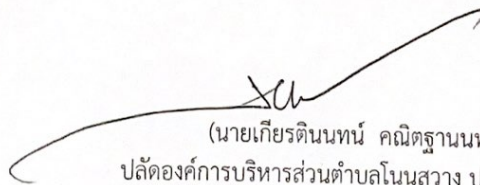 (นายเกียรตินนทน์ คณิตฐานนท
ปลัดองค์การบริหารส่วนตำบลโนนสวาง ป